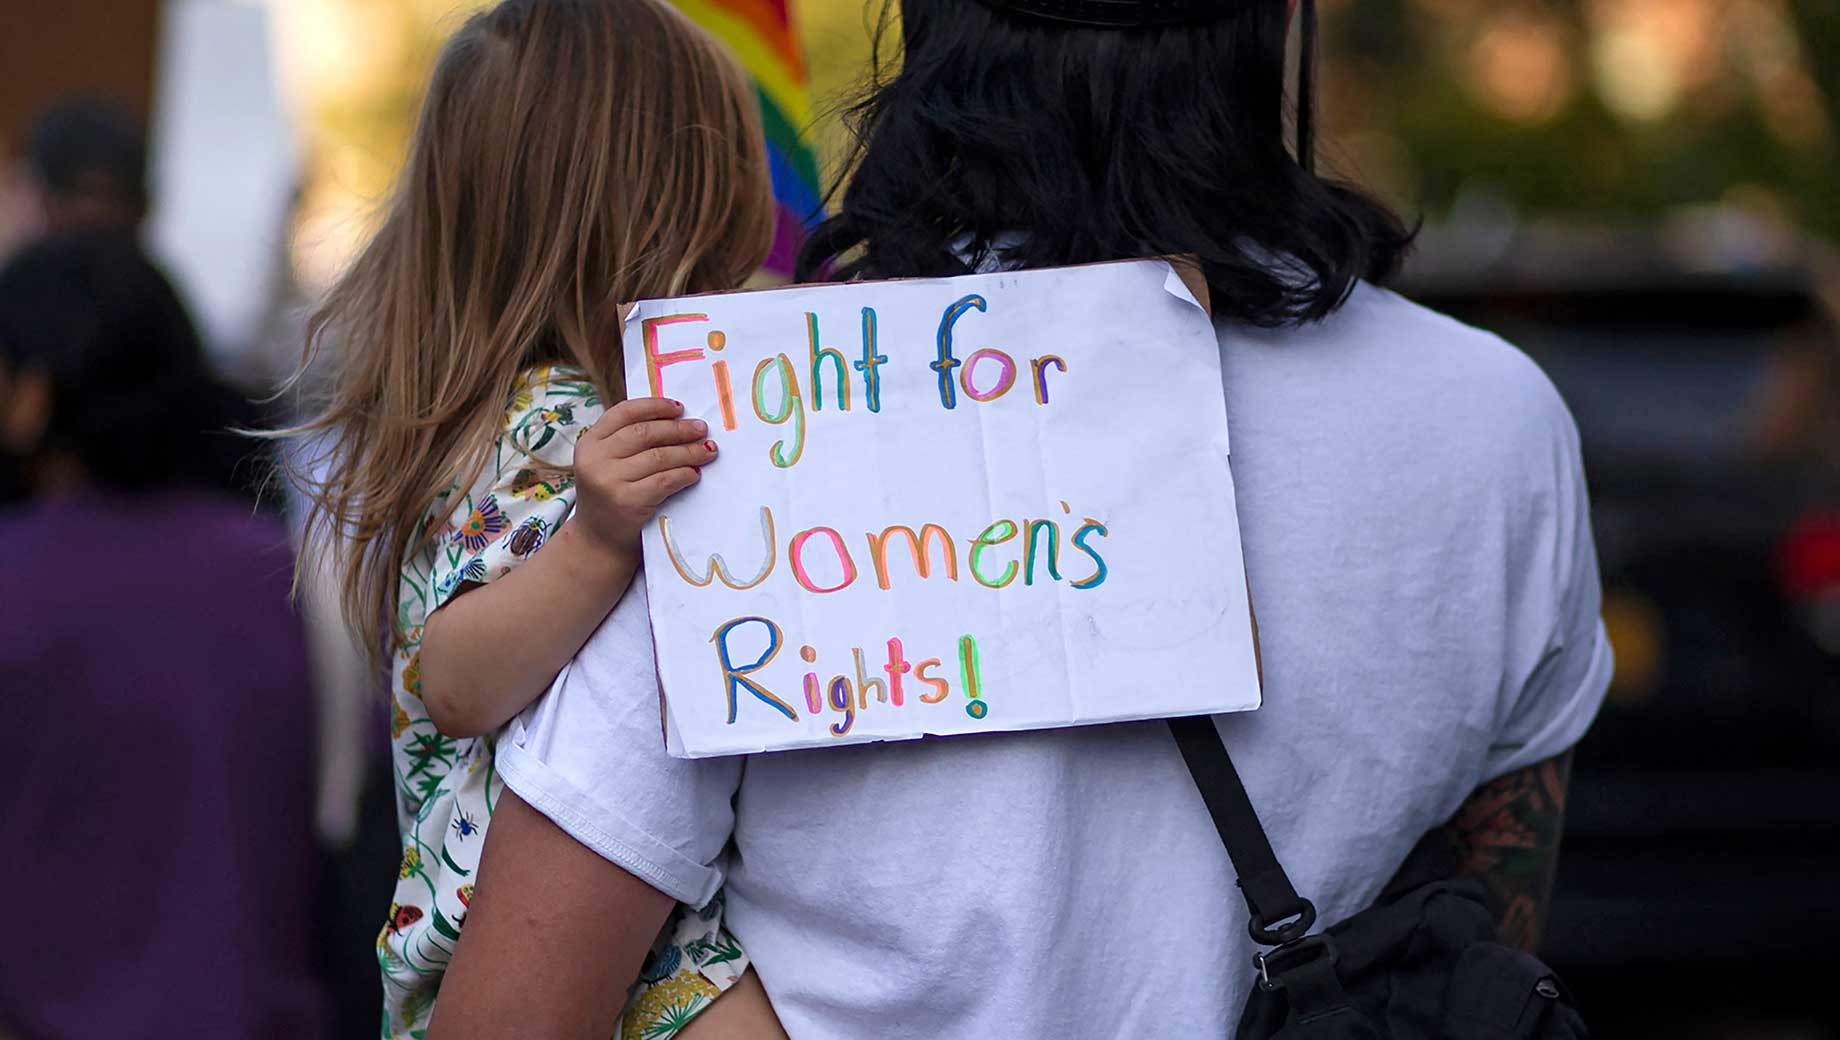 Fight for
Women's
Rights!